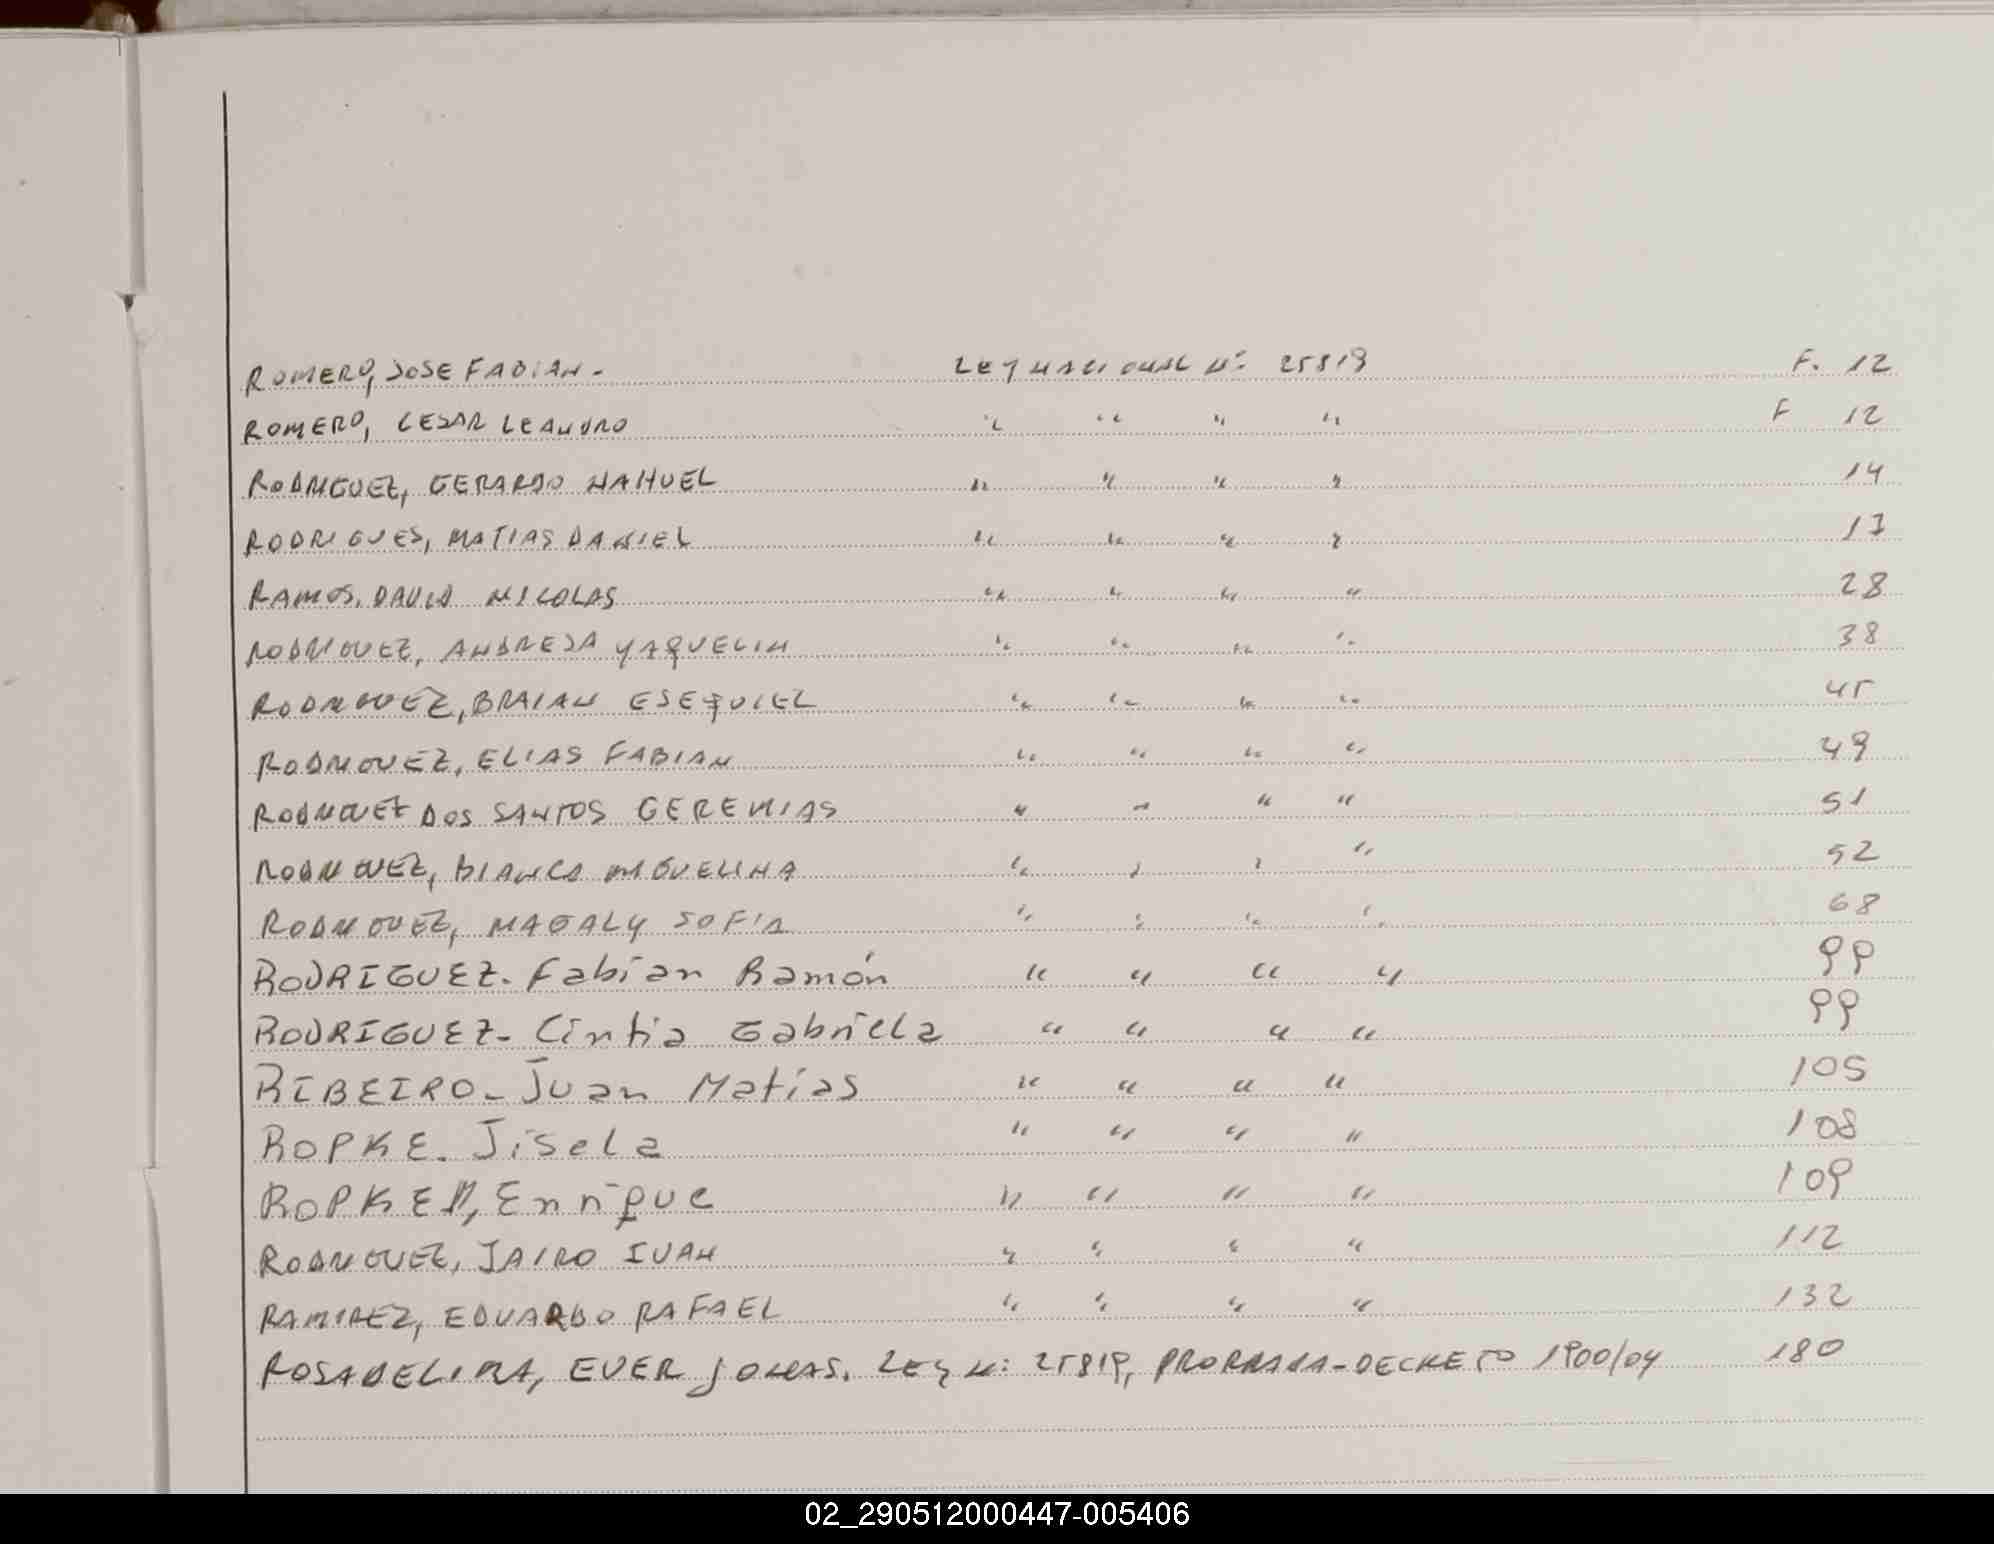 ROMERO, JOSE FABIAN.- LEY NACIONAL Nº: 25819 F. 12
ROMERO, CESAR LEANDRO " " " " F 12
RODRIGUEZ, GERARDO NAHUEL " " " " 14
RODRIGUES, MATIAS DANIEL " " " " 17
RAMOS, DAVID NICOLAS " " " " 28
RODRIGUEZ, ANDREJA YAQUELIN " " " " 38
RODRIGUEZ, BRAIAN ESEQUIEL " " " " 45
RODRIGUEZ, ELIAS FABIAN " " " " 49
RODRIGUEZ DOS SANTOS GEREMIAS " " " " 51
RODRIGUEZ, BIANCA MIGUELINA " " " " 52
RODRIGUEZ, MAGALY SOFIA " " " " 68
RODRIGUEZ. Fabian Ramón " " " " 99
RODRIGUEZ- Cintia Gabriela " " " " 99
RIBEIRO- Juan Matias " " " " 105
ROPKE. Jisela " " " " 108
ROPKE, Enrique " " " " 109
RODRIGUEZ, JAIRO IVAN " " " " 112
RAMIREZ, EDUARDO RAFAEL " " " " 132
EVER JONAS. LEY N: 25819, DECRETO 1900/04 180
02_290512000447-005406